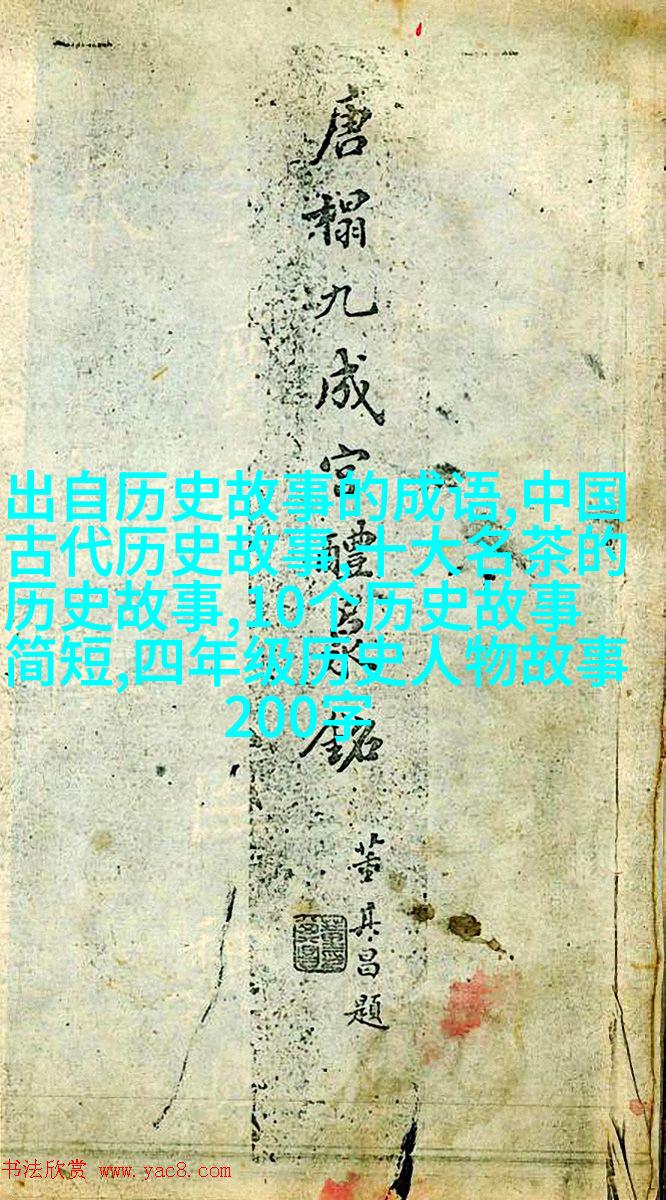 唐榻九成宮醴泉銘
董其昌題
出自历史故事的成语,中国
古代历史故事,十大名茶的
历史故事,10个历史故事
简短,四年级历史人物故事
200字
书法欣赏 www.yac8.com